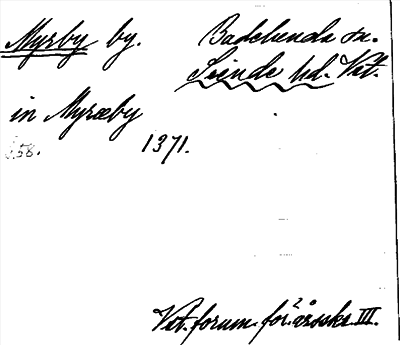 Myrby by. Badelunda sn.
Siende hd. Vst.
in Myræby
1371.
Vst. fornm. för. 2 årsskr. III.